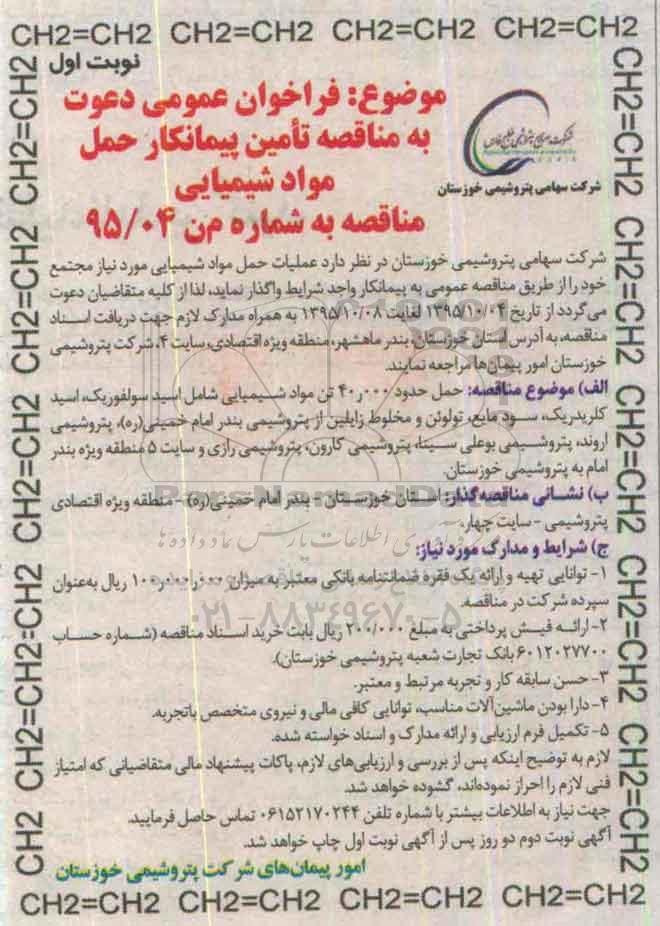 CH2=CH2 CH2=CH2 CH2=CH2 CH2=CH2
نوبت اول
موضوع: فراخوان عمومی دعوت
به مناقصه تأمین پیمانکار حمل
مواد شیمیایی
مناقصه به شماره م‌ن ۹۵/۰۴
شرکت صنایع پتروشیمی خلیج فارس
شرکت سهامی پتروشیمی خوزستان
شرکت سهامی پتروشیمی خوزستان در نظر دارد عملیات حمل مواد شیمیایی مورد نیاز مجتمع
خود را از طریق مناقصه عمومی به پیمانکار واجد شرایط واگذار نماید، لذا از کلیه متقاضیان دعوت
می‌گردد از تاریخ ۱۳۹۵/۱۰/۰۴ لغایت ۱۳۹۵/۱۰/۰۸ به همراه مدارک لازم جهت دریافت اسناد
مناقصه، به آدرس استان خوزستان، بندر ماهشهر، منطقه ویژه اقتصادی، سایت ۴، شرکت پتروشیمی
خوزستان امور پیمان‌ها مراجعه نمایند.
الف) موضوع مناقصه: حمل حدود ۴۰٫۰۰۰ تن مواد شیمیایی شامل اسید سولفوریک، اسید
کلریدریک، سود مایع، تولوئن و مخلوط زایلین از پتروشیمی بندر امام خمینی(ره)، پتروشیمی
اروند، پتروشیمی بوعلی سینا، پتروشیمی کارون، پتروشیمی رازی و سایت ۵ منطقه ویژه بندر
امام به پتروشیمی خوزستان.
ب) نشانی مناقصه‌گذار: استان خوزستان - بندر امام خمینی(ره) - منطقه ویژه اقتصادی
پتروشیمی - سایت چهار.
ج) شرایط و مدارک مورد نیاز:
۱- توانایی تهیه و ارائه یک فقره ضمانتنامه بانکی معتبر به میزان ۱۰۰٫۰۰۰٫۰۰۰ ریال به‌عنوان
سپرده شرکت در مناقصه.
۲- ارائه فیش پرداختی به مبلغ ۲۰۰/۰۰۰ ریال بابت خرید اسناد مناقصه (شماره حساب
۶۰۱۲۰۲۷۷۰۰ بانک تجارت شعبه پتروشیمی خوزستان).
۳- حسن سابقه کار و تجربه مرتبط و معتبر.
۴- دارا بودن ماشین‌آلات مناسب، توانایی کافی مالی و نیروی متخصص باتجربه.
۵- تکمیل فرم ارزیابی و ارائه مدارک و اسناد خواسته شده.
لازم به توضیح اینکه پس از بررسی و ارزیابی‌های لازم، پاکات پیشنهاد مالی متقاضیانی که امتیاز
فنی لازم را احراز نموده‌اند، گشوده خواهد شد.
جهت نیاز به اطلاعات بیشتر با شماره تلفن ۰۶۱۵۲۱۷۰۲۴۴ تماس حاصل فرمایید.
آگهی نوبت دوم دو روز پس از آگهی نوبت اول چاپ خواهد شد.
امور پیمان‌های شرکت پتروشیمی خوزستان
CH2=CH2 CH2=CH2 CH2=CH2 CH2=CH2
CH2=CH2 CH2=CH2 CH2=CH2 CH2=CH2 CH2=CH2
CH2=CH2 CH2=CH2 CH2=CH2 CH2=CH2 CH2
ParsNamadData
۰۲۱-۸۸۳۴۹۶۷۰-۵